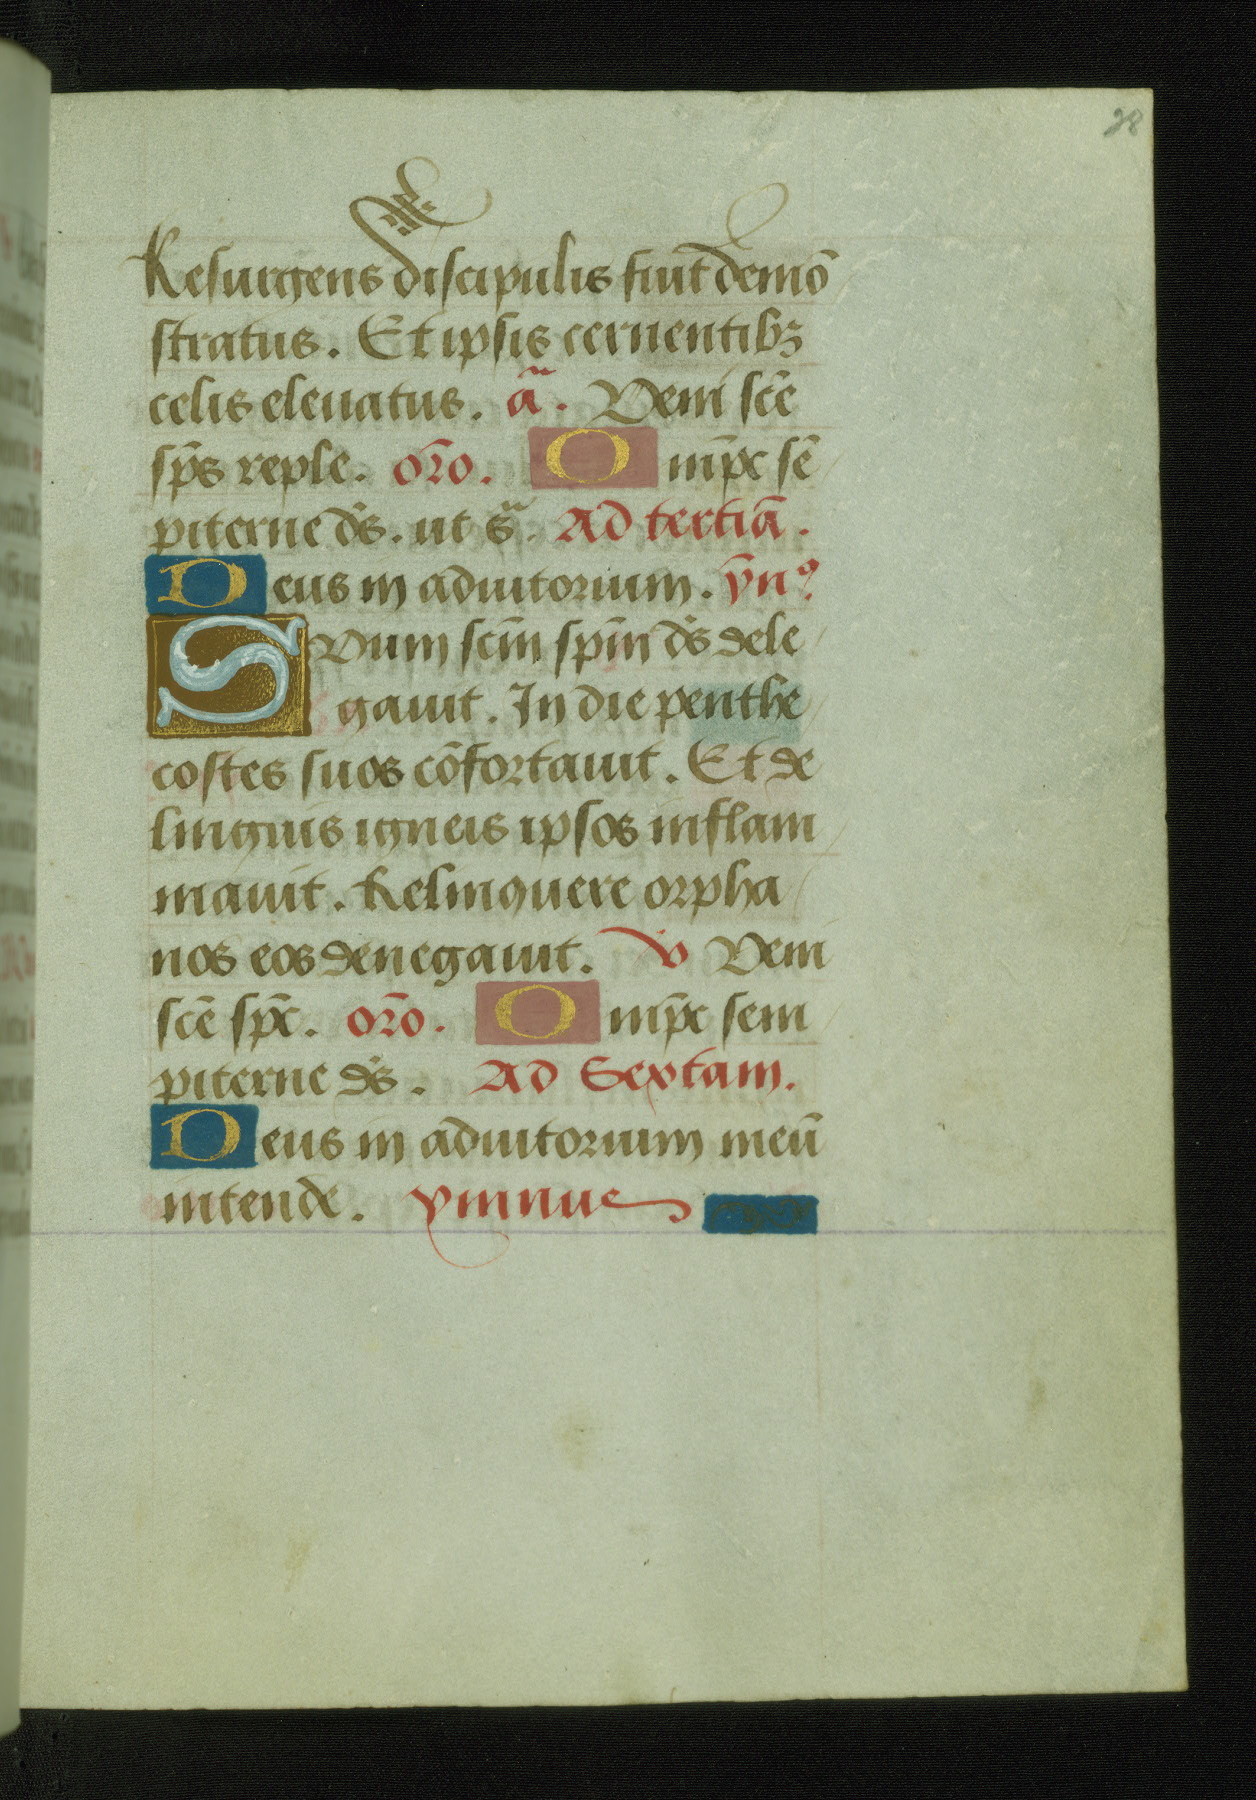 28
Resurgens discipulis fiut̄ demō
stratus. Et ipsis cernentibꝫ
celis eleuatus. a͠. Veni scē
sp̄s reple. or̄o. O mp̄x sē
piterne ds̄. ut s͠. Ad tertiā.
Deus in adiutorium. ȳnꝰ
SVum scm̄ spm̄ ds̄ dele
gauit. In die penthe
costes suos cōfortauit. Et de
linguis igneis ipsos inflam
mauit. Relinquere orpha
nos eos denegauit. v Veni
scē sp̄c. or̄o. O mp̄x sem
piterne ds̄. Ad Sextam.
Deus in adiutorium meū
intende. ymnus